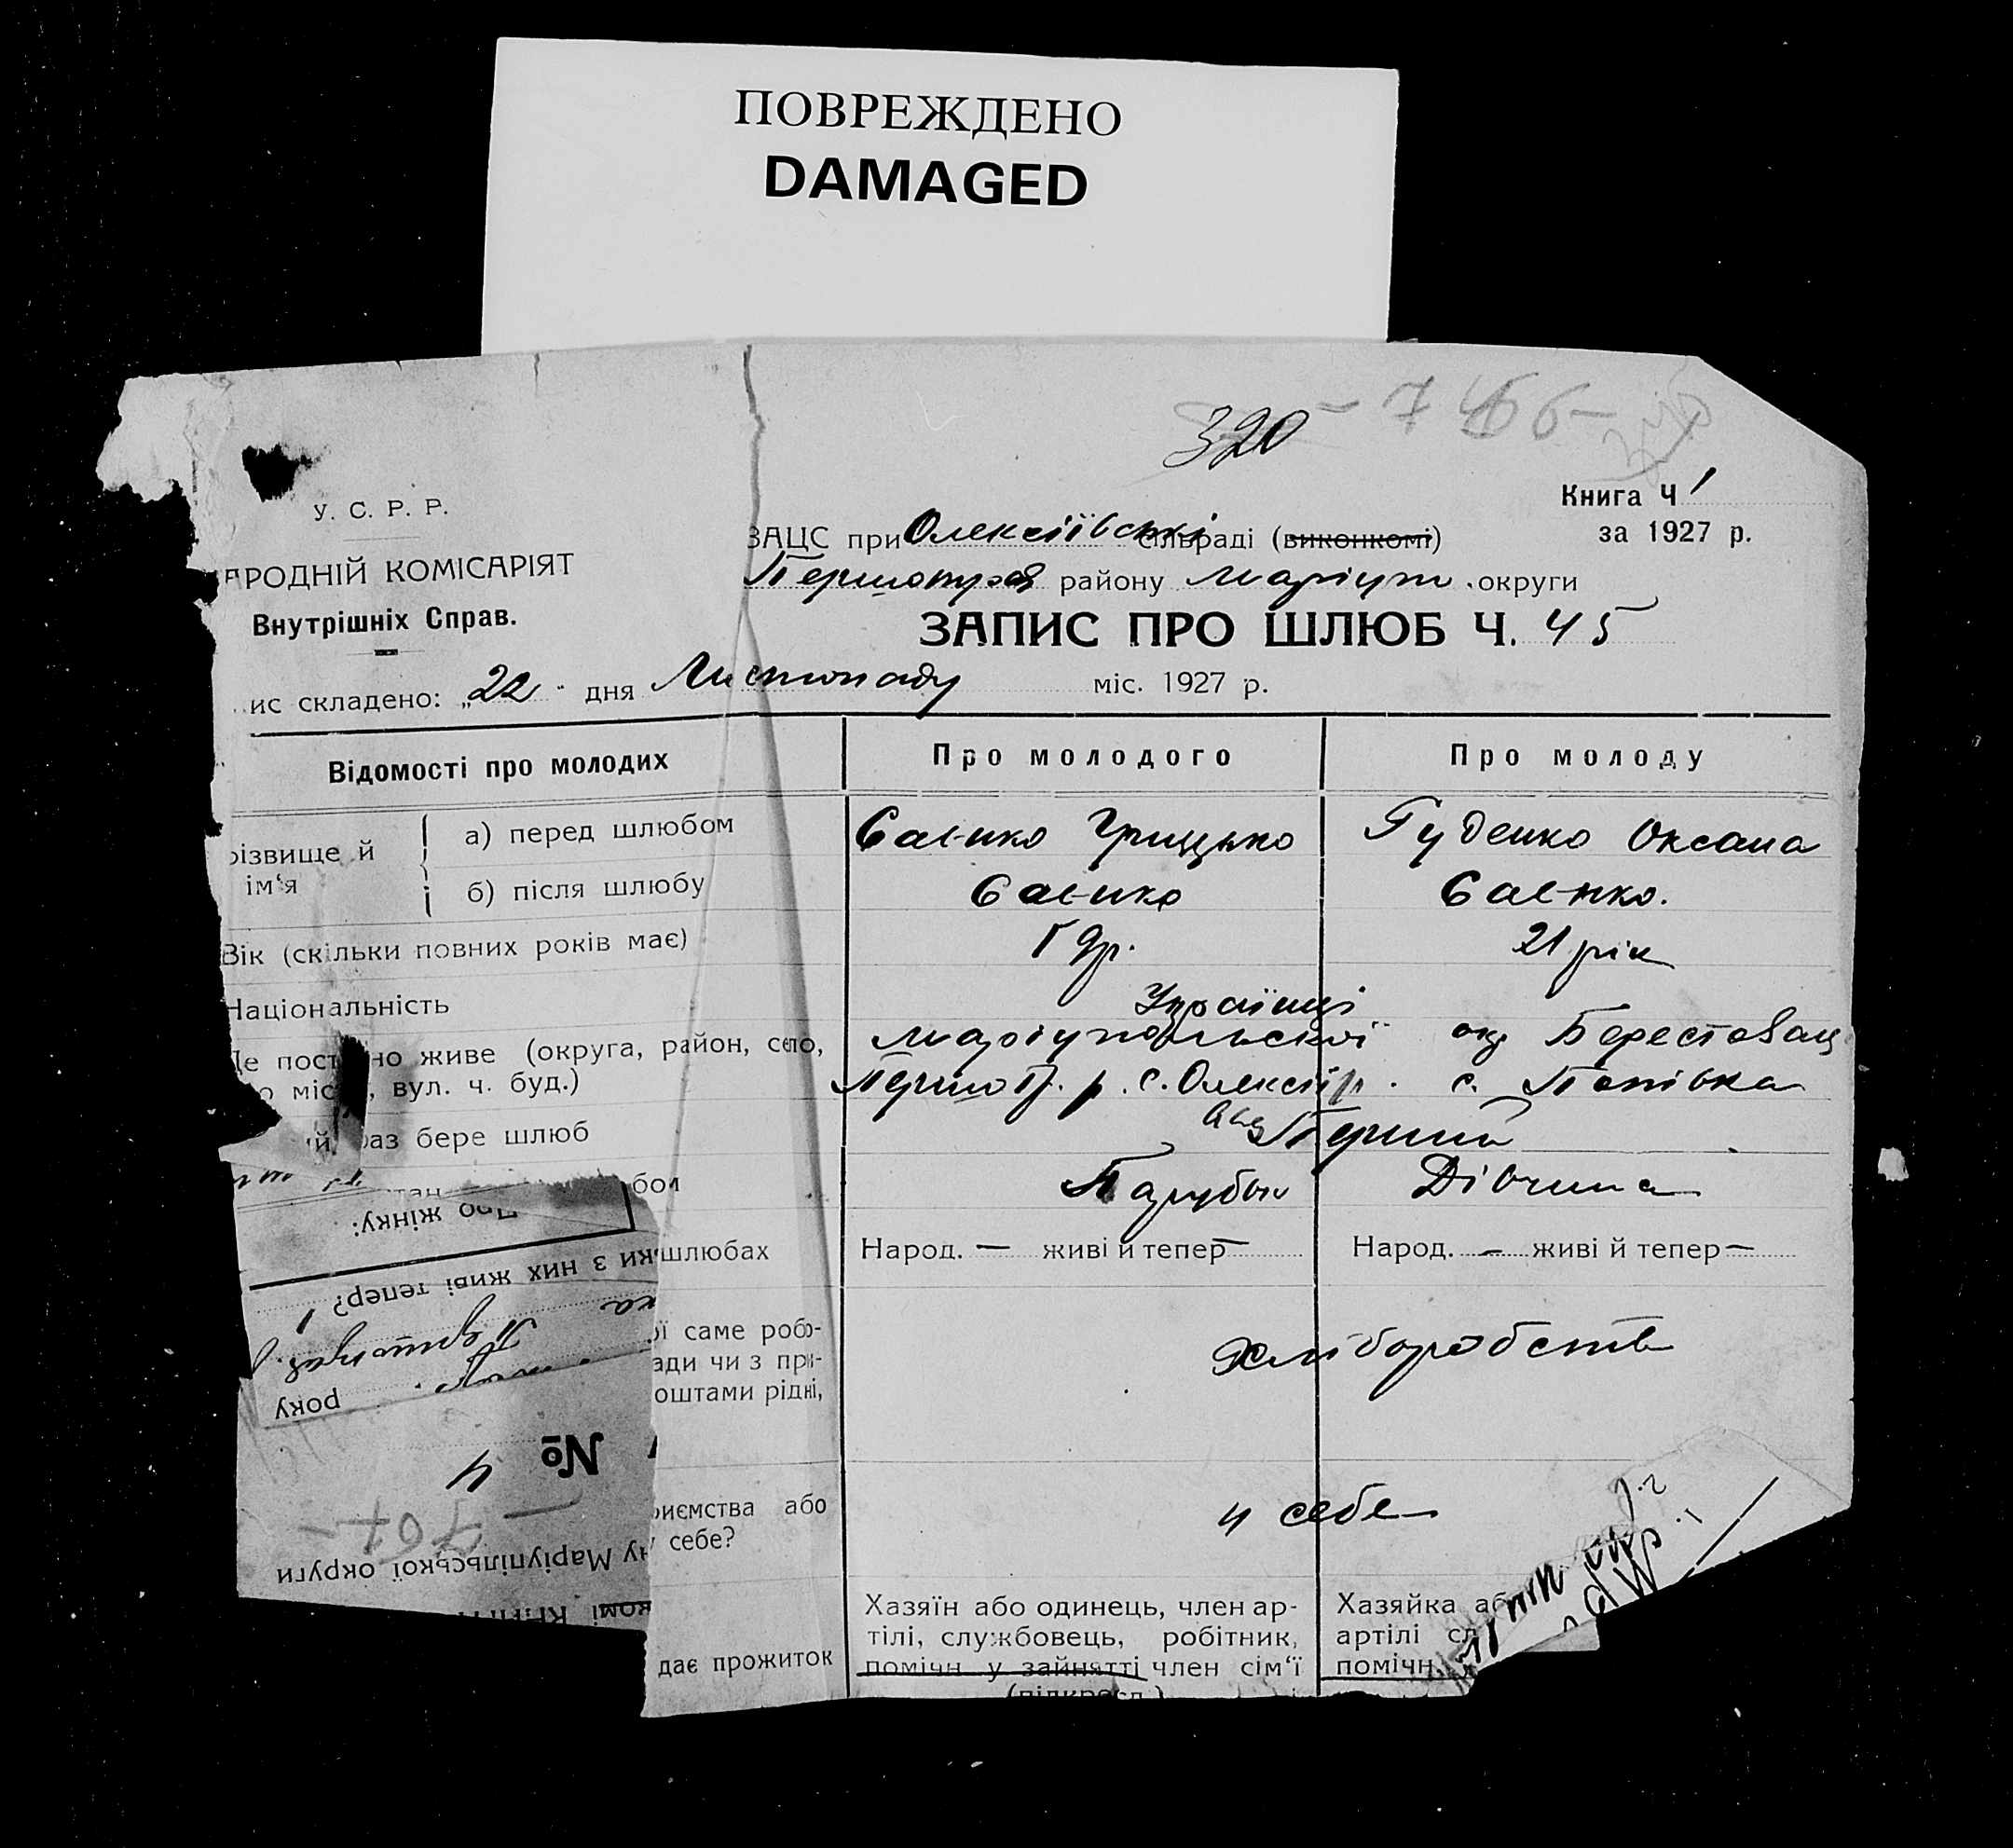 ПОВРЕЖДЕНО
DAMAGED
320 - 7466 -
Книга Ч 1
за 1927 р.
У. С. Р. Р.
АРОДНІЙ КОМІСАРІЯТ
Внутрішніх Справ.
ЗАЦС при Олексіївські сільраді (виконкомі)
району Маріуп. округи
ЗАПИС ПРО ШЛЮБ Ч. 45
ис складено: „22" дня Листопаду міс. 1927 р.
Відомості про молодих
Про молодого
Про молоду
різвище й ім'я
а) перед шлюбом
Саєнко Грицько
Гуденко Оксана
б) після шлюбу
Саєнко
Саєнко.
Вік (скільки повних років має)
19р.
21 рік
Національність
Українці
Де постійно живе (округа, район, село,
Маріупольської ок. Берестовац
о міс , вул. ч. буд.)
р. с. Олексіїв. с. Попівка
ий раз бере шлюб
Перший
тан бом
Парубок
Дівчина
шлюбах
Народ. — живі й тепер —
Народ. — живі й тепер —
ої саме робо-
ади чи з при-
оштами рідні,
Хліборобств
риємства або
у себе?
у себе
дає прожиток
Хазяїн або одинець, член ар-
тілі, службовець, робітник,
помічн. у зайнятті член сім'ї
(підкресл.)
Хазяйка аб
артілі сл
помічн.
Про жінку:
ьки з них живі тепер? 1
року
№ 4
— 767 —
ну Маріупільської округи
комі